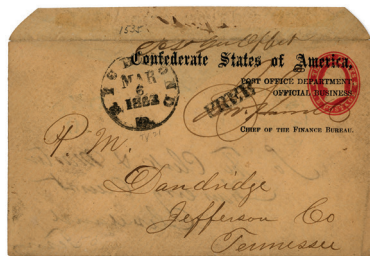 1535
Confederate States of America,
POST OFFICE DEPARTMENT
OFFICIAL BUSINESS
RICHMOND
MAR
6
Va.
FREE
CHIEF OF THE FINANCE BUREAU.
P. M.
Dandridge
Jefferson Co
Tennessee